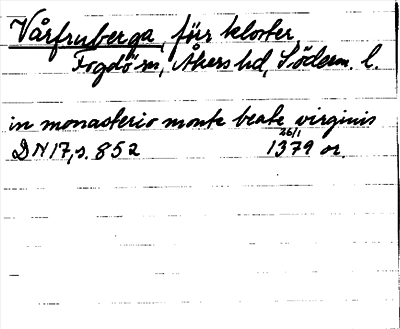 Vårfruberga, förr kloster,
Fogdö sn, Åkers hd, Söderm. l.
in monasterio monte beate virginis
26/1
DN 17, s. 852 1379 or.